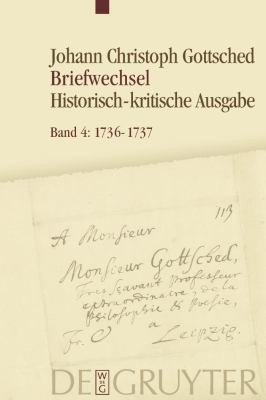 Johann Christoph Gottsched
Briefwechsel
Historisch-kritische Ausgabe
Band 4: 1736-1737
113
A Monsieur
Monsieur Gottsched,
Tres scavant Professeur
extraordinaire, de la
Philosophie & Poesie,
Fr. a
Leipzig.
DE GRUYTER
W
DE
G